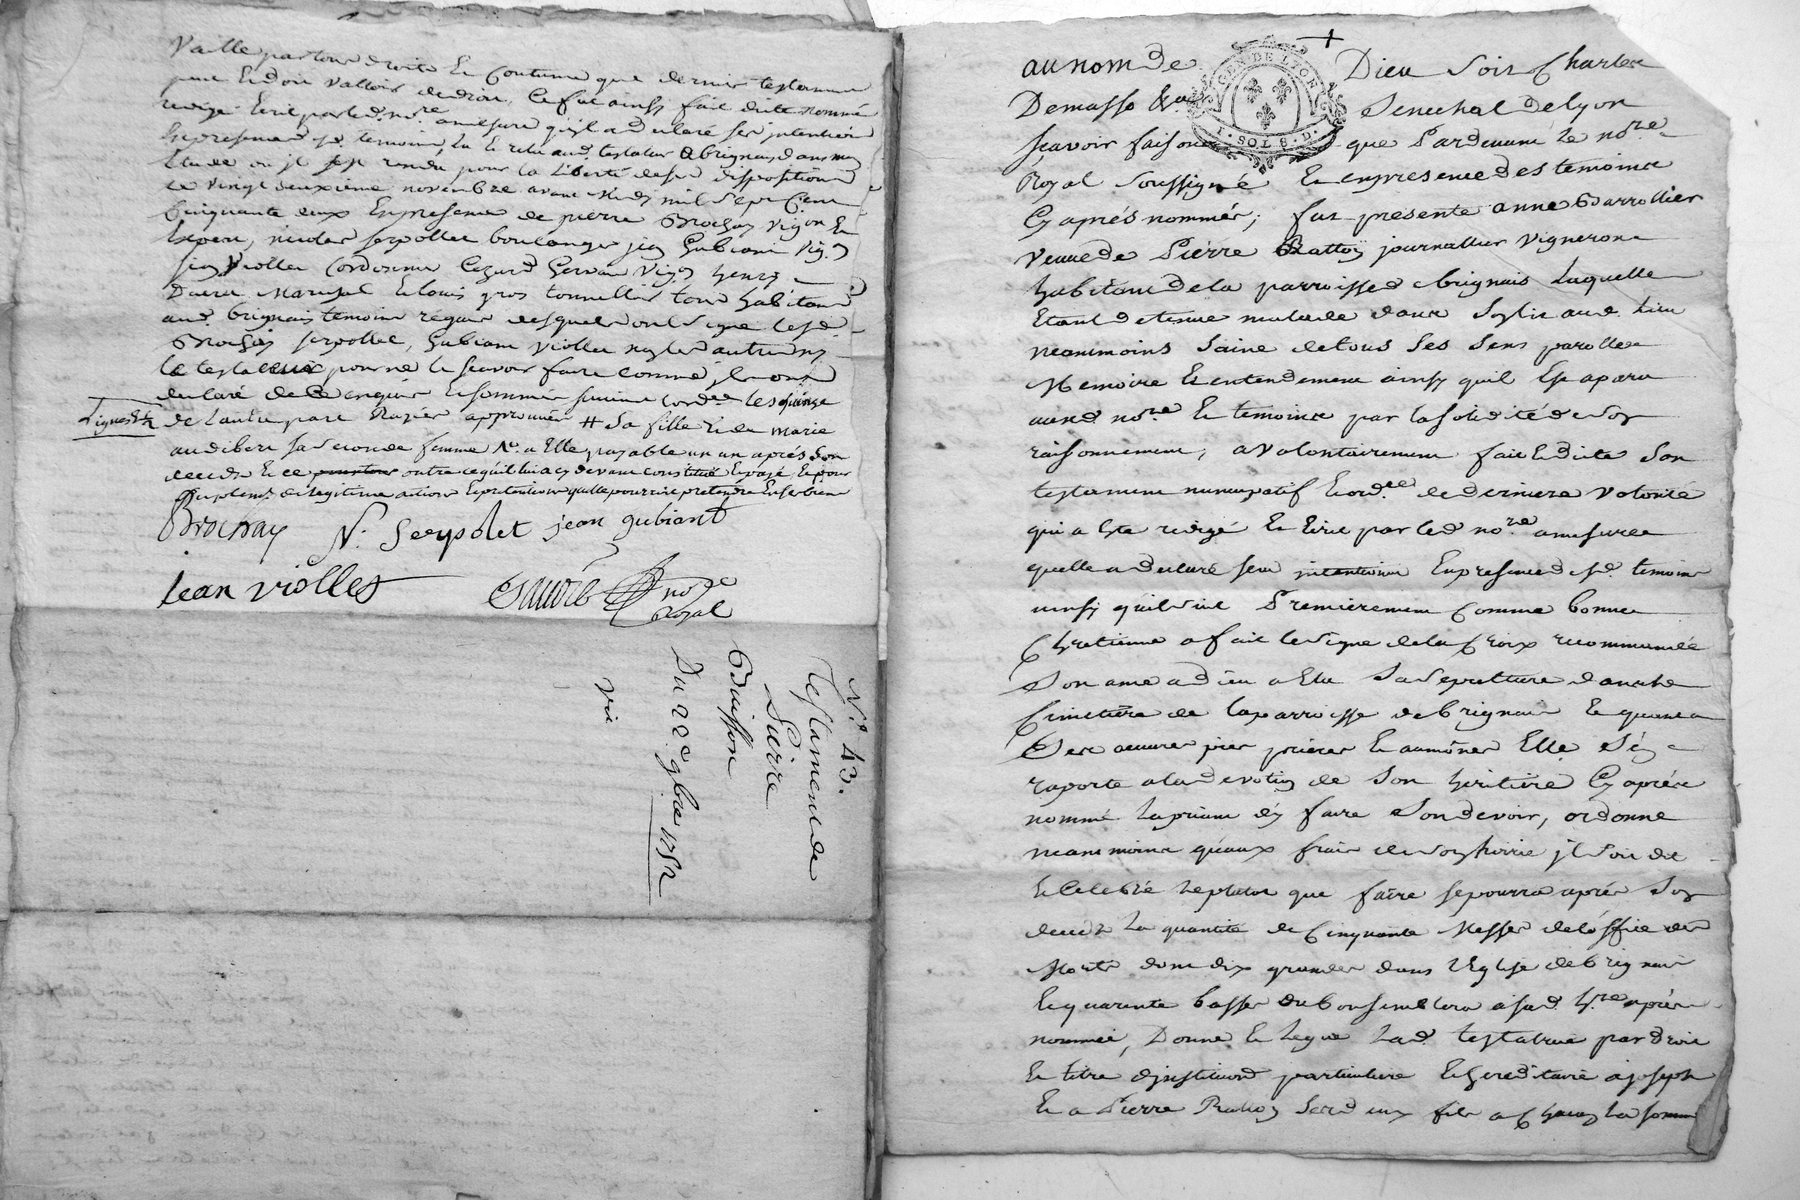 Vaille par tous droits Et Coutume que dernier testament
peut Et doit valloir de droit, Ce fut ainsy fait dicté nommé
redigé Ecrit par led. no.re amesure qu'il a declaré ses intention
En presence des d. temoins, Lu Et relu aud. testateur a brignais dans mon
Etude ou jl s'est rendu pour la Liberté de ses disposition
Le vingt deuxième novembre avant Midy mil Sept Cent
Cinquante deux En presence de pierre Brochay Vigon Et
Expert, nicolas serpollet boulanger jean Gubiant Vig.on
jean Viollet Cordonnier Cezard Gervais Vig.on henry
Marechal Et Louis gros tonnellier tous habitans
aud. brignais temoins requis desquels ont signé lesd.
Brochay serpollet, Gubiant Viollet non les autres ny
Le testateur pour ne le scavoir faire comme jls ont
declaré de ce enquis Et sommés suivant l'ord.ce
Lignes Et
de l'autre part Rayées approuvées # Sa fille Et de marie
audibert sa seconde femme N.e a Elle payable un an après Son
deceds Et ce pour tous outre ce qu'il lui a cy devant constitué Et payé Et pour
Suplem.t de legitime actions Et pretentions qu'elle pourroit pretendre En ses biens
Brochay N. Serpolet jean gubiant
jean viollet no.re Royal
N.o 43.
Testament de
Pierre
Buisson
Du 22e 9bre 1752
vie
au nom de Dieu Soit Charles
Demasso Sénéchal de lyon
Scavoir faisons que Pardevant Le no.re
Royal Soussigné Et en presence des temoins
Cy après nommés, fut presente anne Barrollier
Veuve de Pierre Rattoy journallier vigneron
habitant de la parroisse de brignais Laquelle
Etant detenue malade dans Son lit aud. Lieu
neammoins Saine de tous Ses Sens parolle
Memoire Et entendement ainsy quil Est aparu
aud. no.re Et temoins par la solidité de Son
raisonnement, a volontairement fait Et dicté Son
testament nuncupatif Et ord.ce de derniere volonté
qui a Eté redigé Et Ecrit par led. no.re a mesure
quelle a declaré ses intention En presence desd. temoins
ainsy quil suit Premierement Comme bonne
Chretienne a fait le Signe de la Croix recommandé
Son ame a dieu a Elu Sa Sepulture dans le
Cimetière de la parroisse de brignais Et quand a
Ses oeuvres pies prières Et aumônes Elle S'en
raporte a la devotion de Son heritière Cy après
nommé La priant d'en faire Son devoir, ordonne
neammoins qu'aux frais de Son hoirie jl Soit dit
Et Celebré Le plutot que faire Se pourra après Son
deceds La quantité de Cinquante Messes de l'office des
Morts dont dix grandes dans l'Eglise de brignais
Et quarante basses ou bon semblera a sad. h.re après
nommée, Donne Et Legue Lad. testatrice par droit
Et titre d'institution particuliere Et hereditaire a joseph
Et a Pierre Rattoy Ses deux fils a Chacun La somme